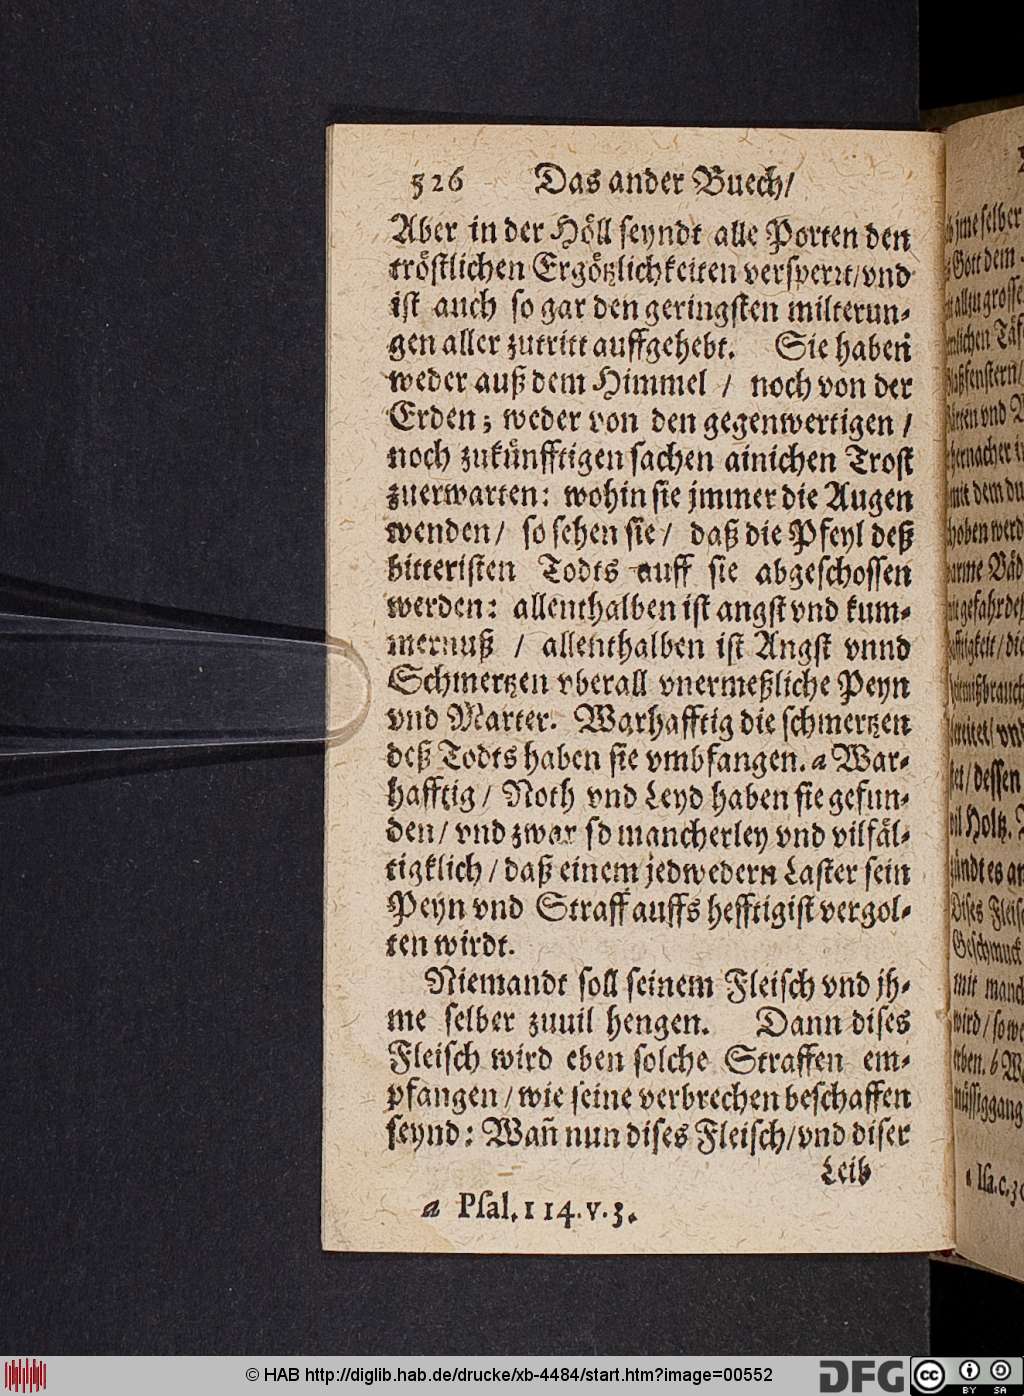 526 Das ander Buech/
Aber in der Höll seyndt alle Porten den
tröstlichen Ergötzlichkeiten versperrt/vnd
ist auch so gar den geringsten milterun-
gen aller zutritt auffgehebt. Sie haben
weder auß dem Himmel / noch von der
Erden; weder von den gegenwertigen /
noch zukünfftigen sachen ainichen Trost
zuerwarten: wohin sie jmmer die Augen
wenden/ so sehen sie/ daß die Pfeyl deß
bitteristen Todts auff sie abgeschossen
werden: allenthalben ist angst vnd kum-
mernuß / allenthalben ist Angst vnnd
Schmertzen vberall vnermeßliche Peyn
vnd Marter. Warhafftig die schmertzen
deß Todts haben sie vmbfangen. a War-
hafftig/ Noth vnd Leyd haben sie gefun-
den/ vnd zwar so mancherley vnd vilfäl-
tigklich/ daß einem jedwedern Laster sein
Peyn vnd Straff auffs hefftigist vergol-
ten wirdt.
Niemandt soll seinem Fleisch vnd jh-
me selber zuuil hengen. Dann dises
Fleisch wird eben solche Straffen em-
pfangen/ wie seine verbrechen beschaffen
seynd: Wañ nun dises Fleisch/vnd diser
Leib
a Psal. 114. v. 3.
jme selber
Gott dem
allzu grosse
fenstern/
vnd
hernacher
mit dem du
hoben werd
gefahr deß
vnd
/dessen
Holtz.
es an
Dises Fleis
Geschmuck
mit manch
wird/so we
erben. b
müssiggang
Isa.c.
© HAB http://diglib.hab.de/drucke/xb-4484/start.htm?image=00552
DFG
cc
BY SA